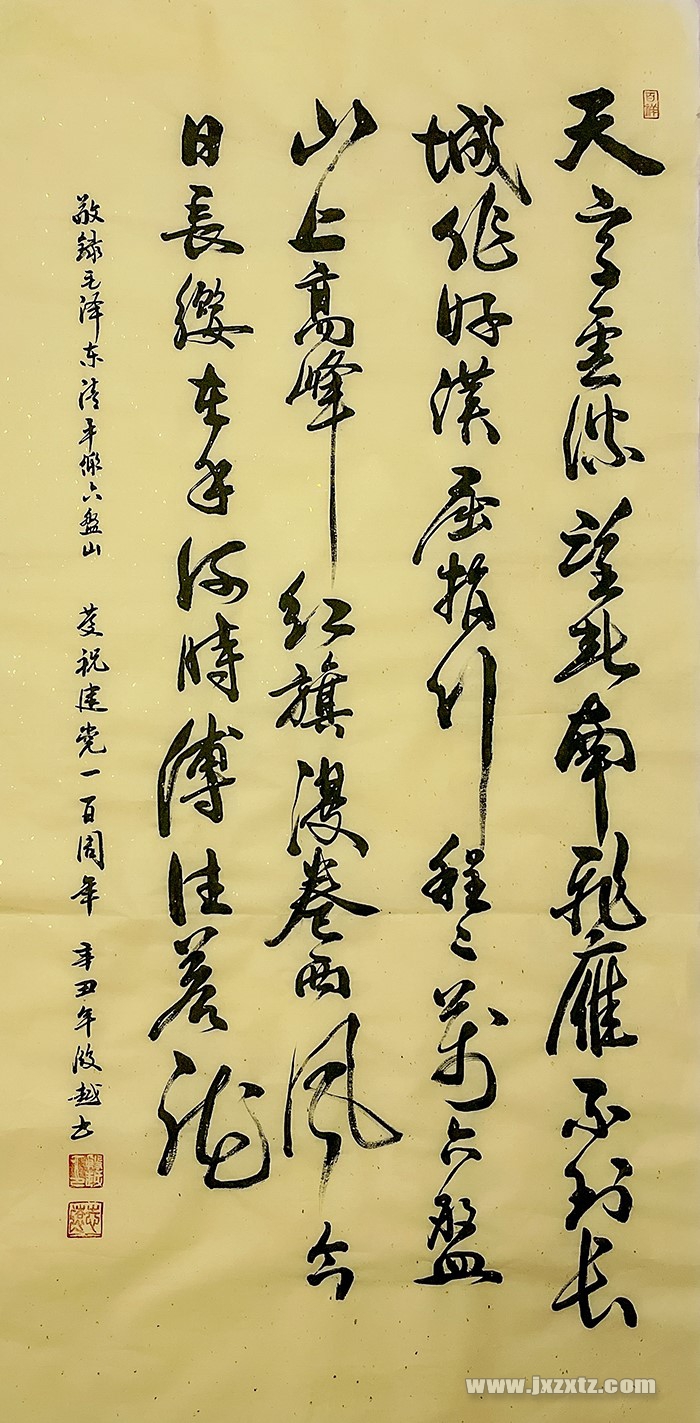 天高雲淡望断南飛雁不到长
城非好漢屈指行程二萬六盤
山上高峰红旗漫卷西风今
日長纓在手何時縛住苍龙
敬録毛泽东清平樂六盘山 慶祝建党一百周年 辛丑年越书
www.jxzxtz.com